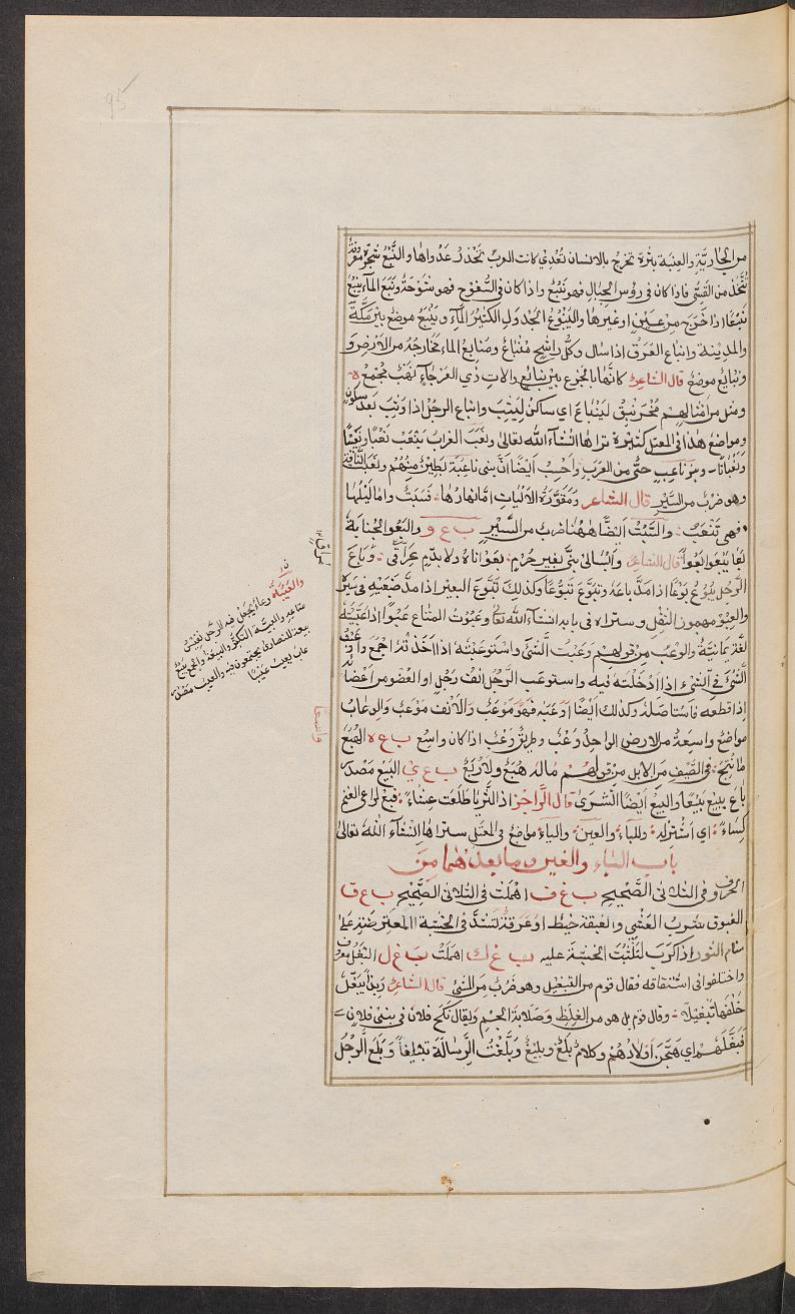 من الجاريّة والعنبة بثرة تخرج بالانسان تُعْدِي كانت العرب تحذر عَدْواها والنَّبْع شجر معروف
تُتَّخذ من القِسِيّ فاذا كان في رؤس الجبال فهو نَبْع واذا كان في السُّفوح فهو شَوْحَطْ ونَبَعَ الماء يَنْبُع
نَبْعًا اذا خَرَج من عَيْن او غيرها واليَنْبُوع الجَدْول الكثير الماء و يَنْبُع موضع بين مكّة
والمدينة وانباع العَرَق اذا سال وكلّ راشح مُنْباعٌ ومنابع الماء مخارجه من الارض و
ونُبايع موضعٌ قال الشاعرُ كانّها بالجِزع بين نبايع والات ذي العَرْجاء نَهْبٌ مُجْمَع
ومثل من امثالهم مُخْرَنْبِق لِيَنْباع اي ساكن لِيَثِبَ وانباع الرجل اذا وثب بعد سكون
ومواضع هذا في المعتل كثيرة تراها انشاء الله تعالى ونعَبَ الغراب يَنْعَب نَعْبًا ونَعيبًا
ونَعَبانًا وبنو ناعِبٍ حيٌّ من العرب واحسِبُ ايضًا انّ بني ناعِبَة بُطَيْن منهم ونَعْب الناقة
وهو ضرب من السَّيْر قال الشاعر ومُقَوَّرَة الاَلْيات امّا نهارُها فسَبْتٌ وامّا ليلُها
فهي تَنْعَبُ والسَّبْت ايضًا ههنا ضربٌ من السَّيْر ب ع و والبَعْو الجِناية
بَعَا يَبْعو بَعْوًا قال الشاعر وابْسالى بنيّ بغير جُرْم بَعَوْناه ولا بدم مراق وباع
الرّجل يَبُوع بَوْعًا اذا مدّ باعَهُ وتَبَوَّع تَبَوُّعًا وكذلك تَبَوَّعَ البعير اذا مدّ ضَبْعَيْهِ في سَيْره
والعِبْؤ مهموز الثِّقْل و ستراه في بابه انشاء الله تعالى وعَبَوْتُ المتاع عَبْوًا اذا عَبَّيْتَهُ
لغة يمانيّة والوَعْب من قولهم وَعَبْت الشئ واسْتَوْعَبْتُه اذا اخذته اجمع
الشئ في الشيء اذا ادخلته فيه واستوعب الرجل انف رجل او العضو من اعضائه
اذا قطعه فاستاصله وكذلك ايضًا اوعَبَه فهو مُوعَب والانف مُوعَب والوِعاب
مواضع واسعةٌ من الارض الواحدُ وَعْب وطريق وَعْب اذا كان واسع ب ع ه الهُبَع
ما نُتِج في الصّيْف من الابل من قولهم ماله هُبَع ولا رُبَع ب ع ي البَيْع مَصْدر
باعَ يبيع بَيْعًا والبيع ايضًا الشِّرى قال الرّاجز اذا الثّريا طَلَعَت عِشاءً فبِعْ لراعي الغنم
كِساءً اي اشْتَرِ له وللباء والعين والياء مواضع في المعتل ستراها انشاء الله تعالى
باب الباء والغين وما بعدهما من
الحروف في الثلاثي الصّحيح ب غ ف اهملت في الثلاثي الصّحيح ب غ ق
الغَبوق شُرب العَشِيّ والغَبَقَة خيط او عَرَقَة تُشَدّ في الخشبة المعترضة على
سنام الثور اذا كَرَب لتثبت الخشبة عليه ب غ ك اهملت ب غ ل البَغْل معروف
واختلفوا في اشتقاقه فقال قوم من التبغيل وهو ضرب من المشي قال الشاعرُ رَبِذًا يُبَغِّل
خَلْفَها تبغيلا وقال قوم بل هو من الغِلَظ وصلابة الجسم ويقال نكح فلان في بني فلان
فبَغَّلَهم اي هَجَّن اولادهم وكلامٌ بَلْغٌ وبليغٌ وبَلَّغْتُ الرّسالَة تبليغًا وبَلَغَ الرّجل
والعَيْبَة وعاء يجعل فيه الرجل نفيس
متاعه
بيعة للنصارى يجتمعون فيه والعيب مصدر
عاب يعيب عَيْبًا